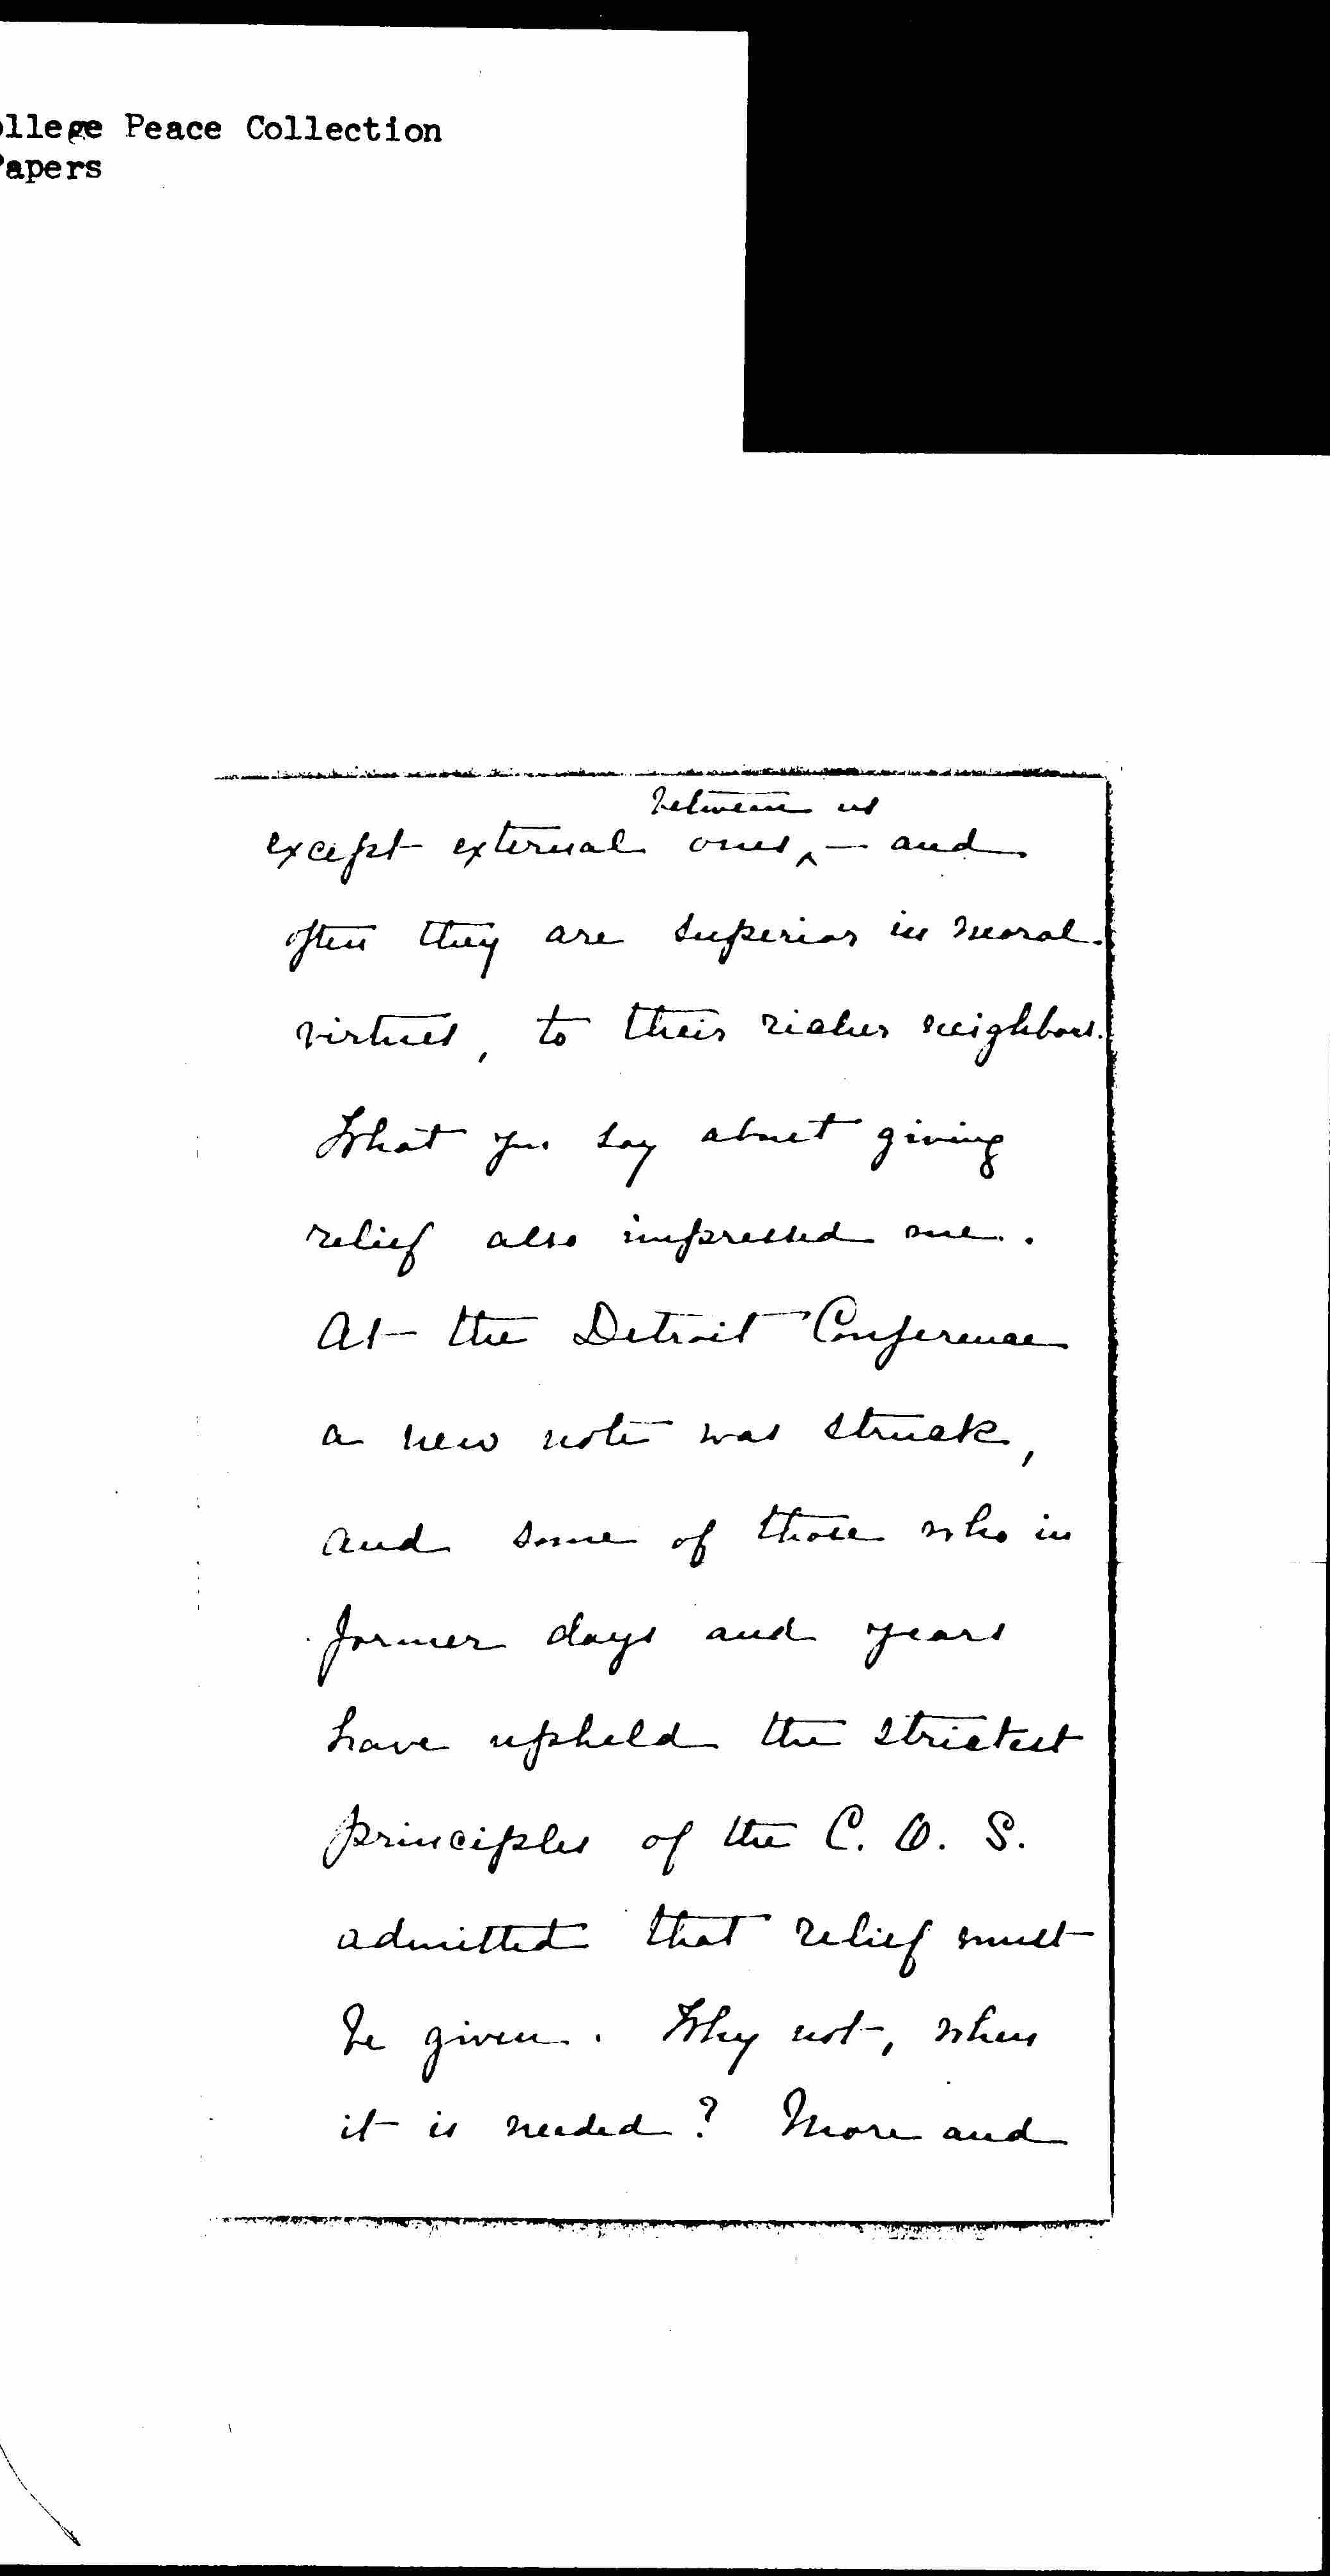 ollege Peace Collection
Papers
between us
except external ones, — and
often they are superior in moral
virtues, to their richer neighbors.
What you say about giving
relief also impressed me.
At the Detroit Conference
a new note was struck,
and some of those who in
former days and years
have upheld the strictest
principles of the C. O. S.
admitted that relief must
be given. Why not, when
it is needed? More and